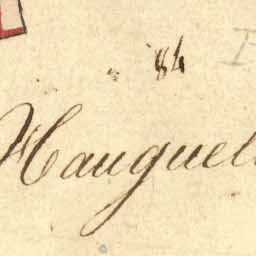 84
Hauguel